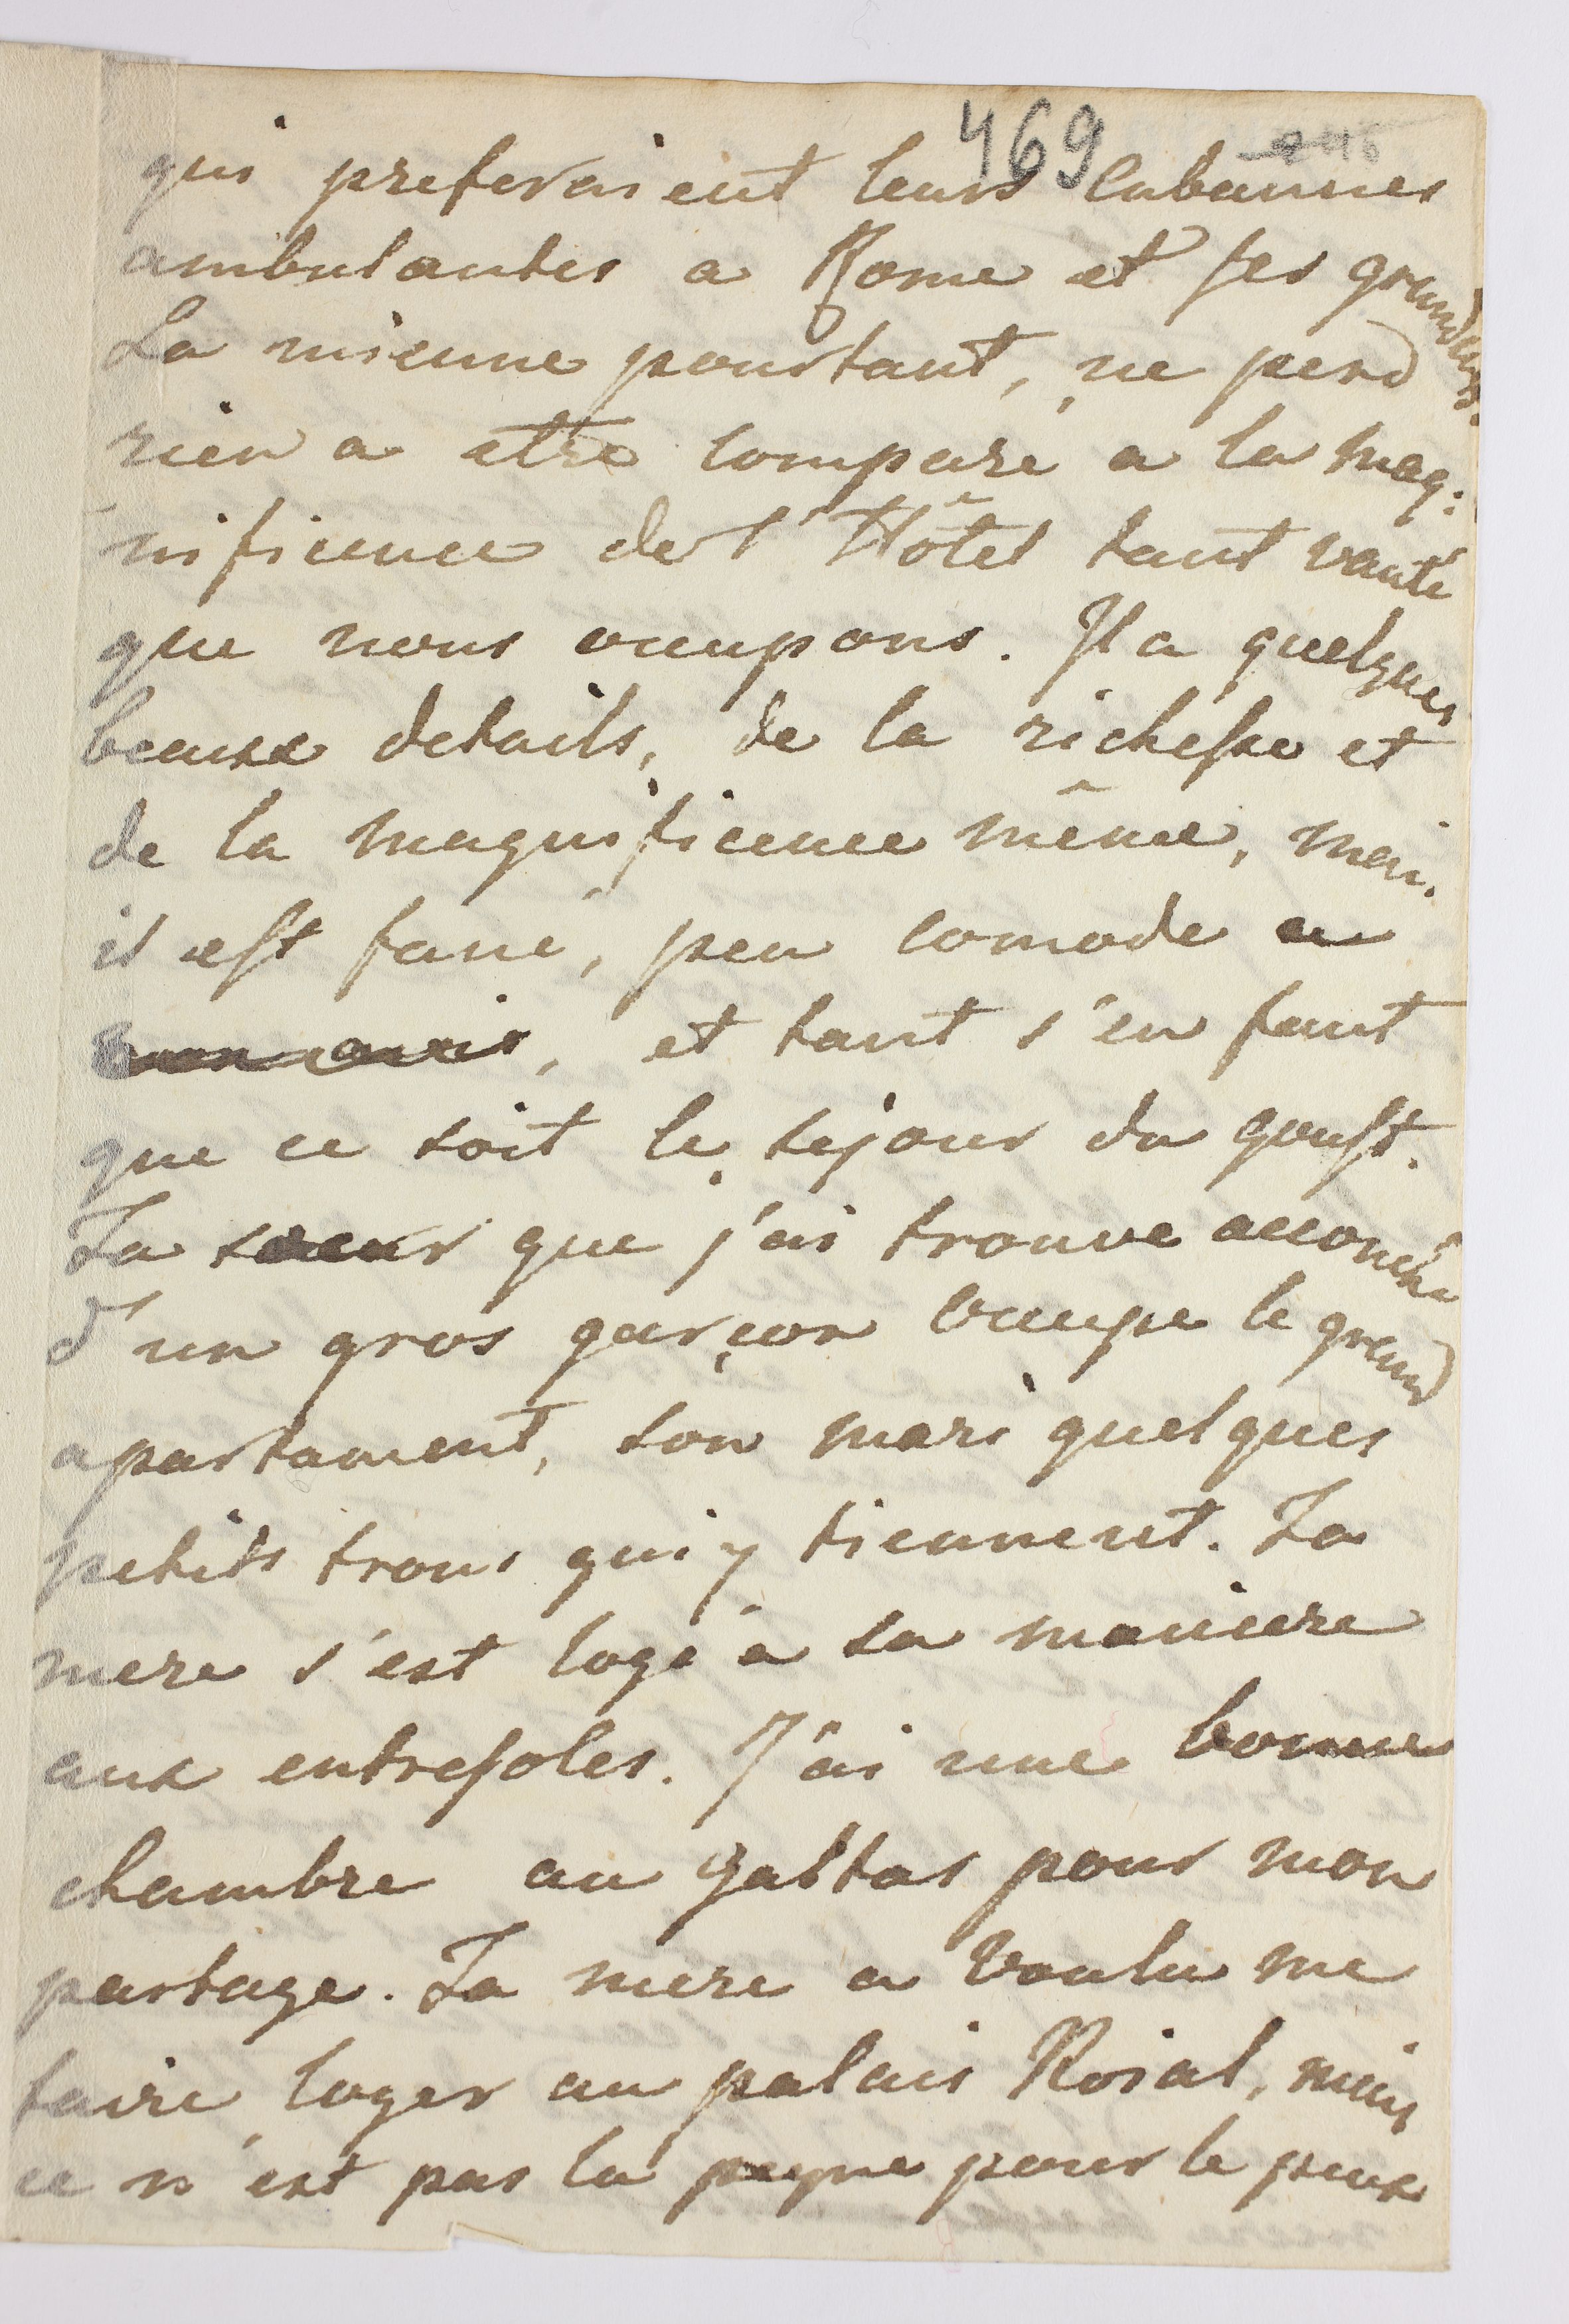 469
qui preferaient leurs cabannes
ambulantes a Rome et ses grandeurs.
La mienne pourtant, ne perd
rien a etre compare a la mag:
nificence de l'Hôtel tant vanté
que nous occupons. Il a quelques
beaux details, de la richesse et
de la magnificence même, mais
il est fané, peu comode
, et tant s'en faut
que ce soit le sejour du goust.
Ta soeur que j'ai trouve accouche
d'un gros garçon occupe le grand
apartament, son mari quelques
petits trous qui y tiennent. Ta
mere s'est logé a sa maniere
aux entresoles. J'ai une bonne
chambre au galtas pour mon
partage. Ta mere a voulu me
faire loger au palais Roial, mais
ce n'est pas la peyne pour le peux